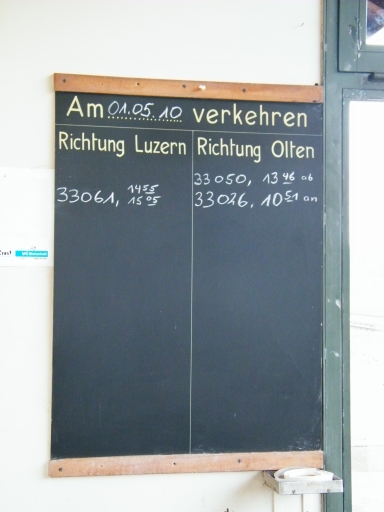 Am 01.05.10 verkehren
Richtung Luzern
33061, 14 55
15 05
Richtung Olten
33050, 13 46 ab
33026, 10 51 an